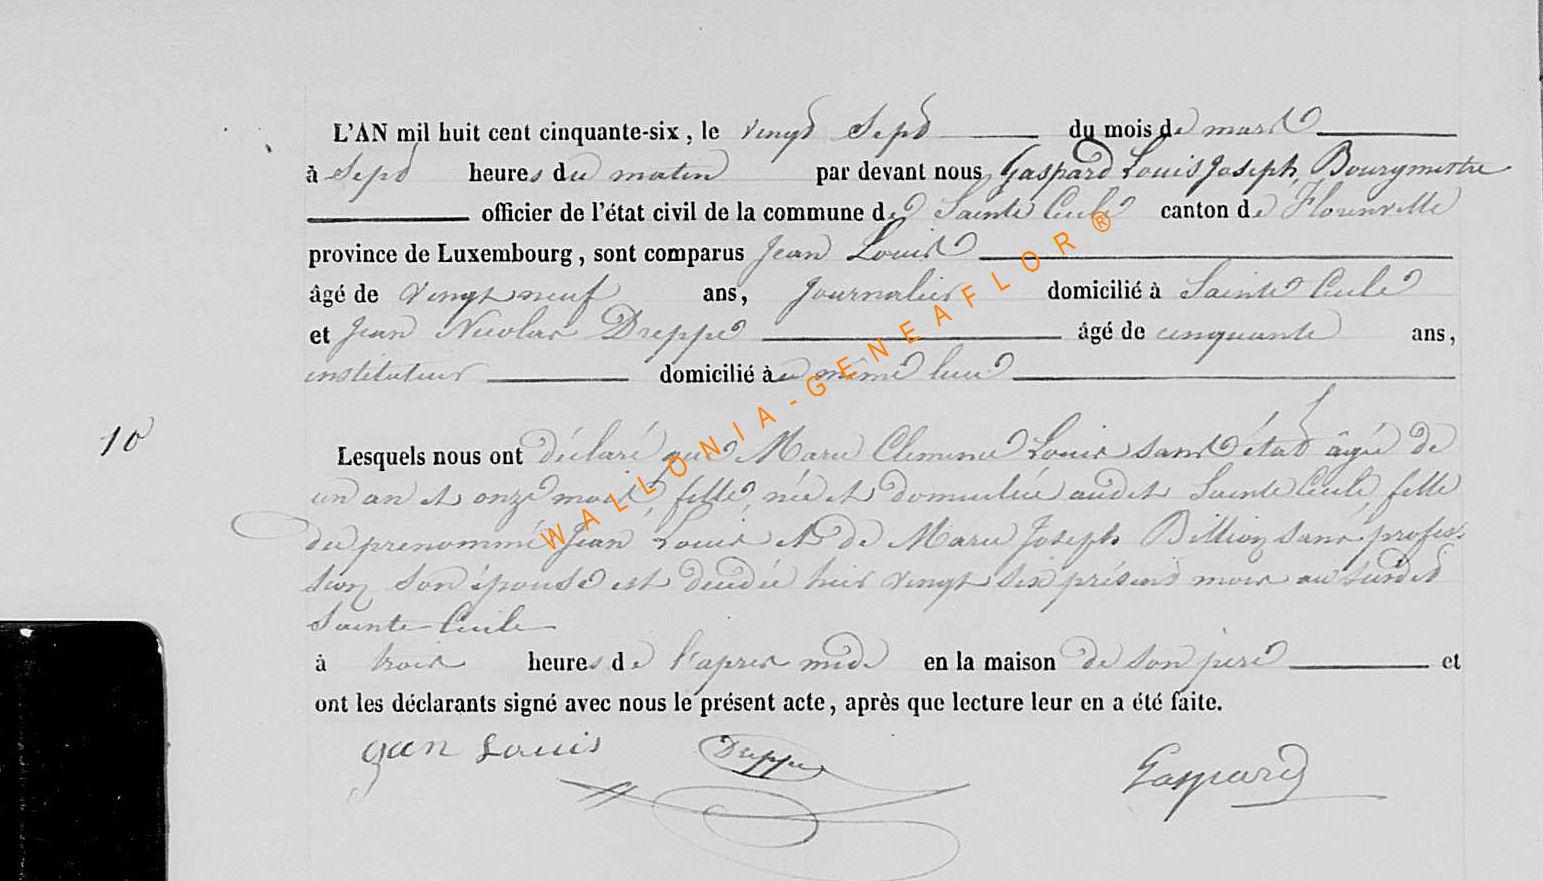 L'AN mil huit cent cinquante-six, le vingt Sept du mois de mars
à Sept heures du matin par devant nous Gaspard Louis Joseph, Bourgmestre
officier de l'état civil de la commune de Sainte Cecile canton de Florenville
province de Luxembourg, sont comparus Jean Louis
âgé de vingt neuf ans, Journalier domicilié à Sainte Cecile
et Jean Nicolas Dreppe âgé de cinquante ans,
instituteur domicilié au même lieu
10
Lesquels nous ont déclaré que Marie Clemence Louis sans état âgée de
un an et onze mois, fille, née et domiciliée audit Sainte Cecile, fille
du prenommé Jean Louis et de Marie Joseph Billion sans profes-
sion son épouse est decedée hier vingt six présent mois au susdit
Sainte Cecile
à trois heures de l'apres midi en la maison de son père et
ont les déclarants signé avec nous le présent acte, après que lecture leur en a été faite.
gan Louis Dreppe Gaspard
WALLONIA-GENEAFLOR®